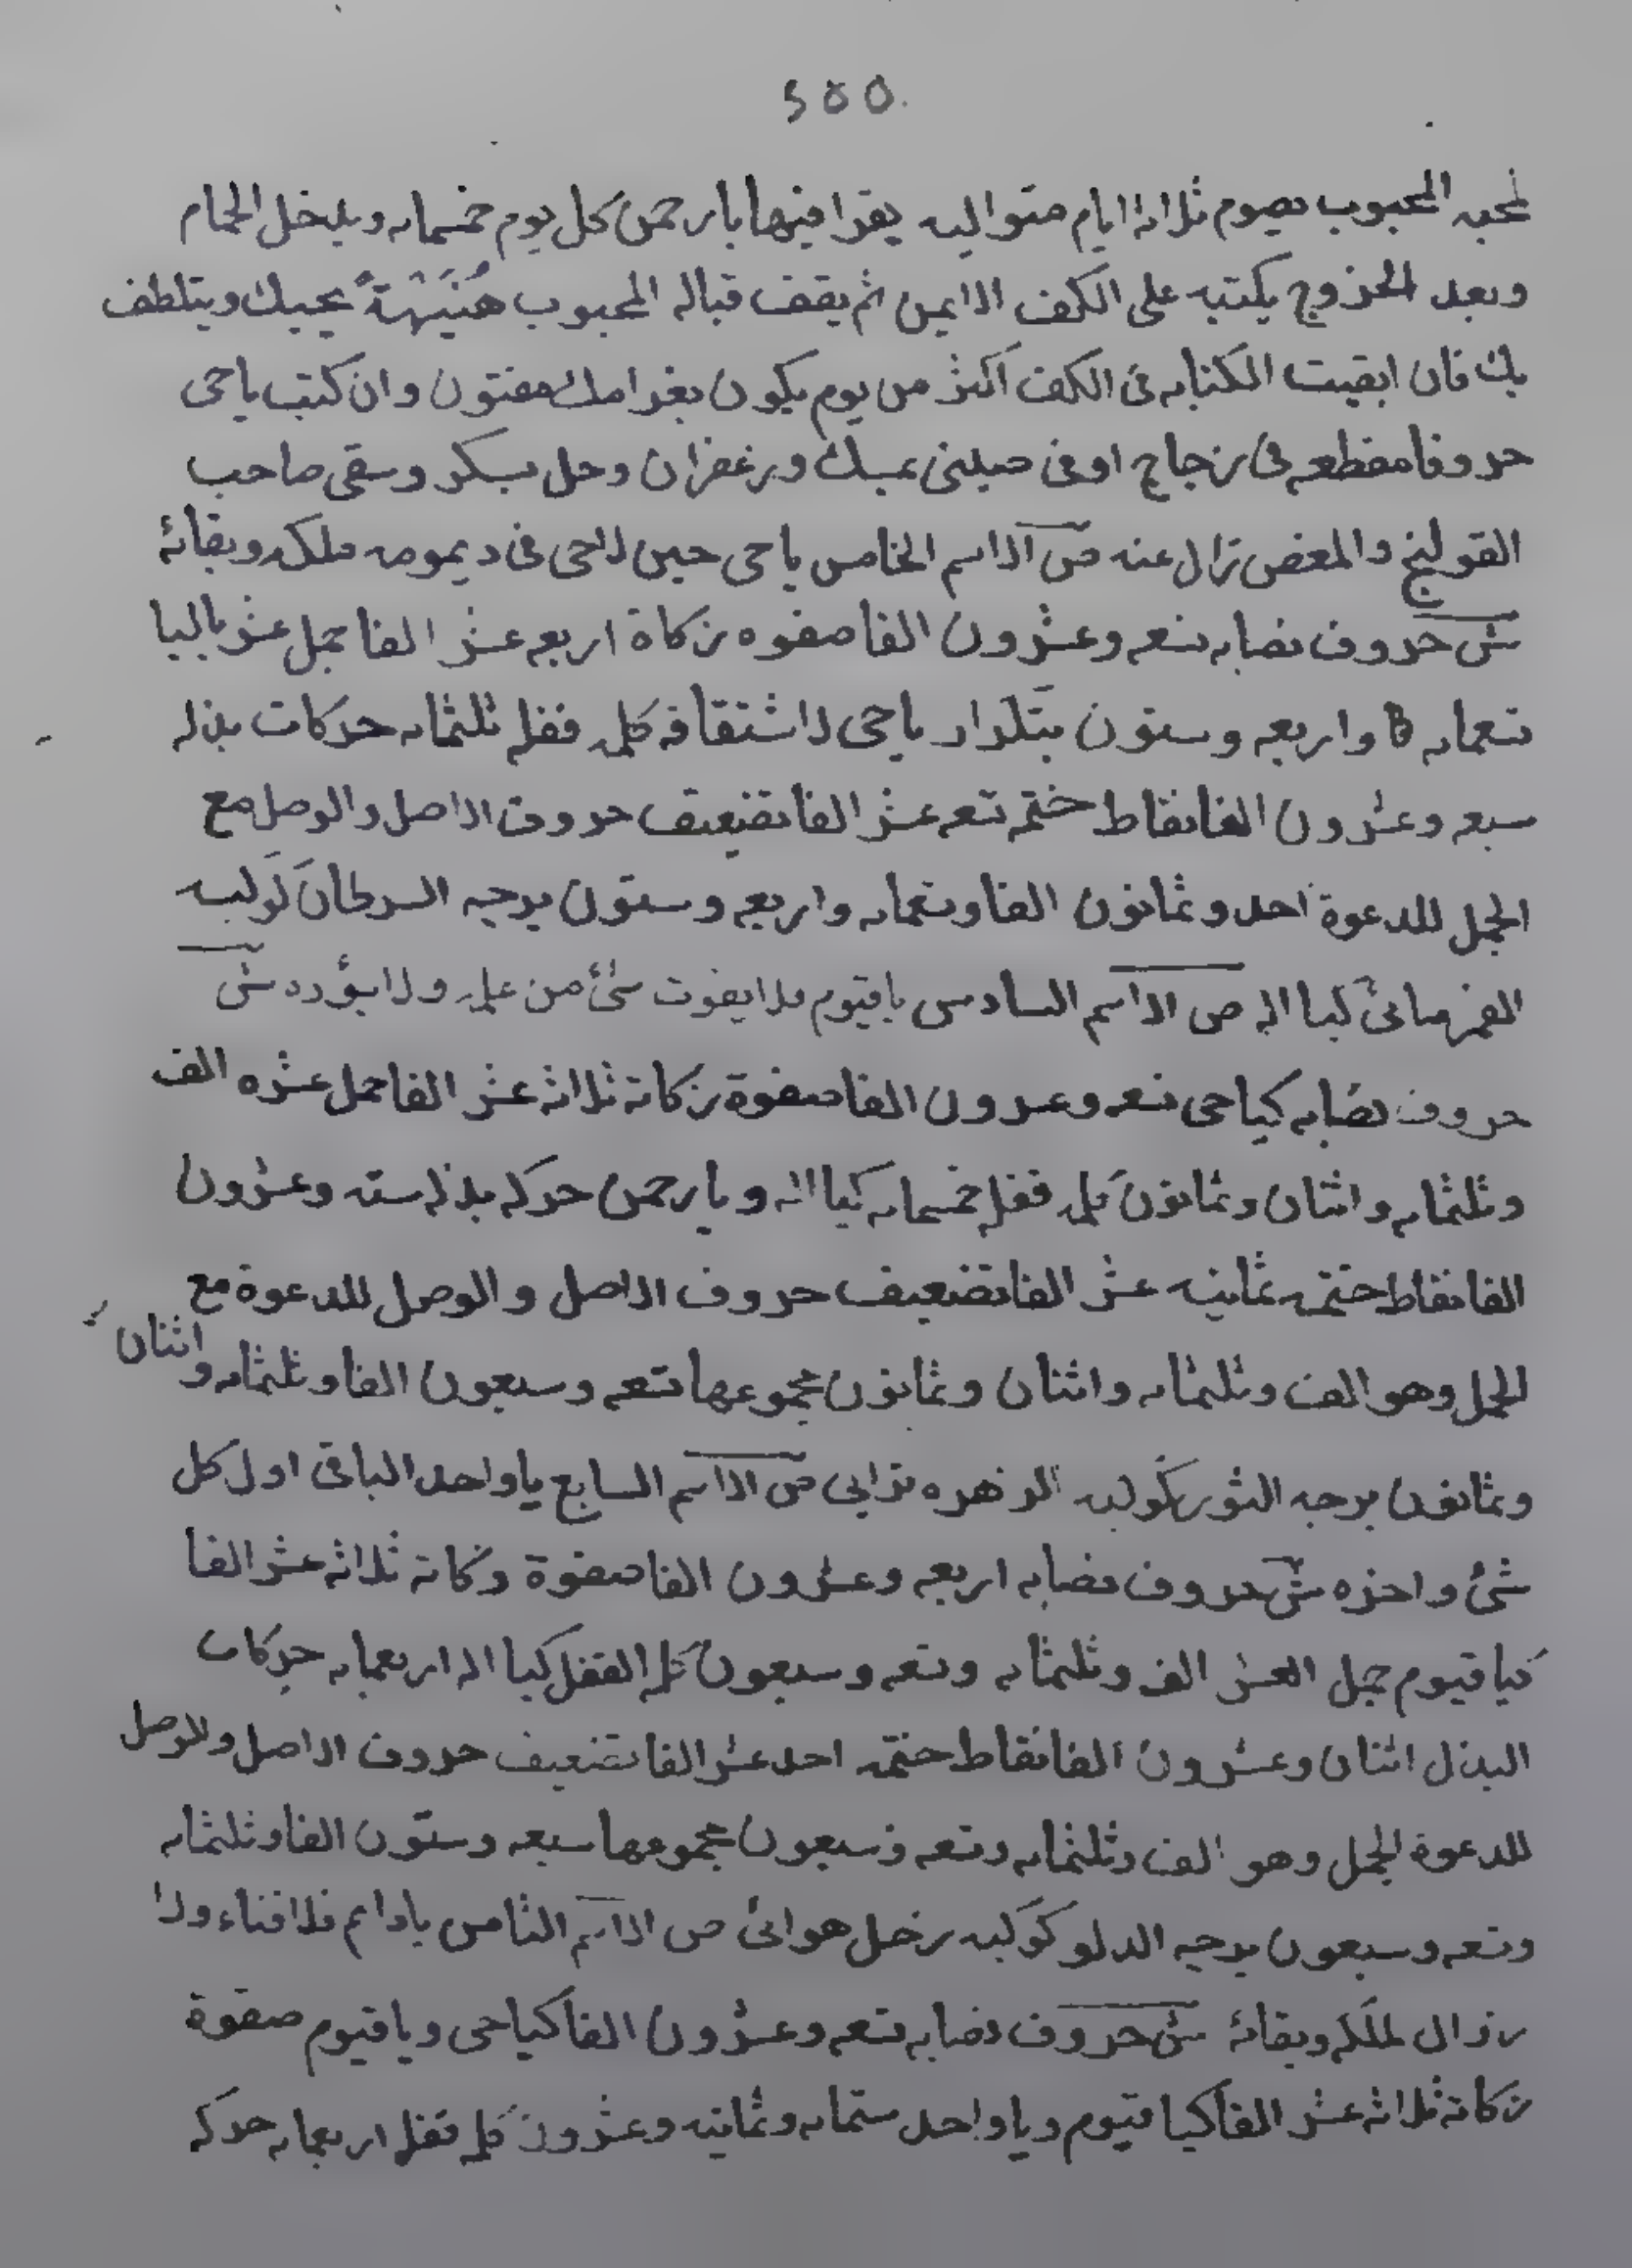 ٥٥۵
لمحبه المحبوب يصوم ثلاثه ايام متواليه يقرا فيها يا رحمن كل يوم خمسمايه ويدخل الحمام
وبعد الخروج يكتبه على الكف الايمن ثم يقف قباله المحبوب هُنَيْهَةً يحيبك ويتلطف
بك فان ابقيت الكتابه فى الكف اكثر من يوم يكون بغرامك مفتون وان كتب ياحى
حروفا مقطعه فى زجاج اوفى صينى بمسك وزعفران وحل بسكر وسقى صاحب
القولنج والمغص زال عنه ص الاسم الخامس ياحى حين لاحى فى ديمومه ملكه وبقائه
ش حروف نصابه تسعه وعشرون الفا صفوه زكاة اربعه عشر الفا جمل عشر بااليا
تسعمايه واربعه وستون بتكرار ياحى لاشتقاقه كله قفله ثلثمايه حركات بذله
سبعه وعشرون الفا نقاط ختم تسعه عشر الفا تضعيف حروف الاصل والوصل مع
الجمل للدعوة احد وثمانون الفا وتسعمايه واربعه وستون برجيه السرطان كوكبه
القمر مائى كيا الله ص الاسم السادس ياقيوم فلا يفوت شئ من علمه ولا يؤده ش
حروف نصابه كياحى تسعه وعشرون الفا صفوة زكاته ثلاثه عشر الفا جمل عشره الف
وثلثمايه واثنان وثمانون كله قفله خمسمايه كيا الله ويا رحمن حركه بذله سته وعشرون
الفا نقاط ختمه ثمانيه عشر الفا تضعيف حروف الاصل والوصل للدعوة مع
الجمل وهو الف وثلثمايه واثنان وثمانون مجموعها تسعه وسبعون الفا وثلثمايه واثنان
وثمانون برجه الثور كوكبه الزهره ترابى ص الاسم السابع ياواحد الباقى اول كل
شئ واخره ش حروف نصابه اربعه وعشرون الفا صفوة زكاته ثلاثه عشر الفا
كيا قيوم جمل العشر الف وثلثمايه وتسعه وسبعون كله القفل كيا الله اربعمايه حركات
البذل اثنان وعشرون الفا نقاط ختمه احد عشر الفا تضعيف حروف الاصل والوصل
للدعوة الجمل وهو الف وثلثمايه وتسعه وسبعون مجموعها سبعه وستون الفا وثلثمايه
وتسعه وسبعون برجيه الدلو كوكبه زحل هوائى ص الاسم الثامن يادايم فلا فناء ولا
زوال لملكه وبقائه ش حروف نصابه تسعه وعشرون الفا كياحى ويا قيوم صفوة
زكاته ثلاثه عشر الفا كيا قيوم ويا واحد ستمايه وثمانيه وعشرون كله قفله اربعمايه حركه